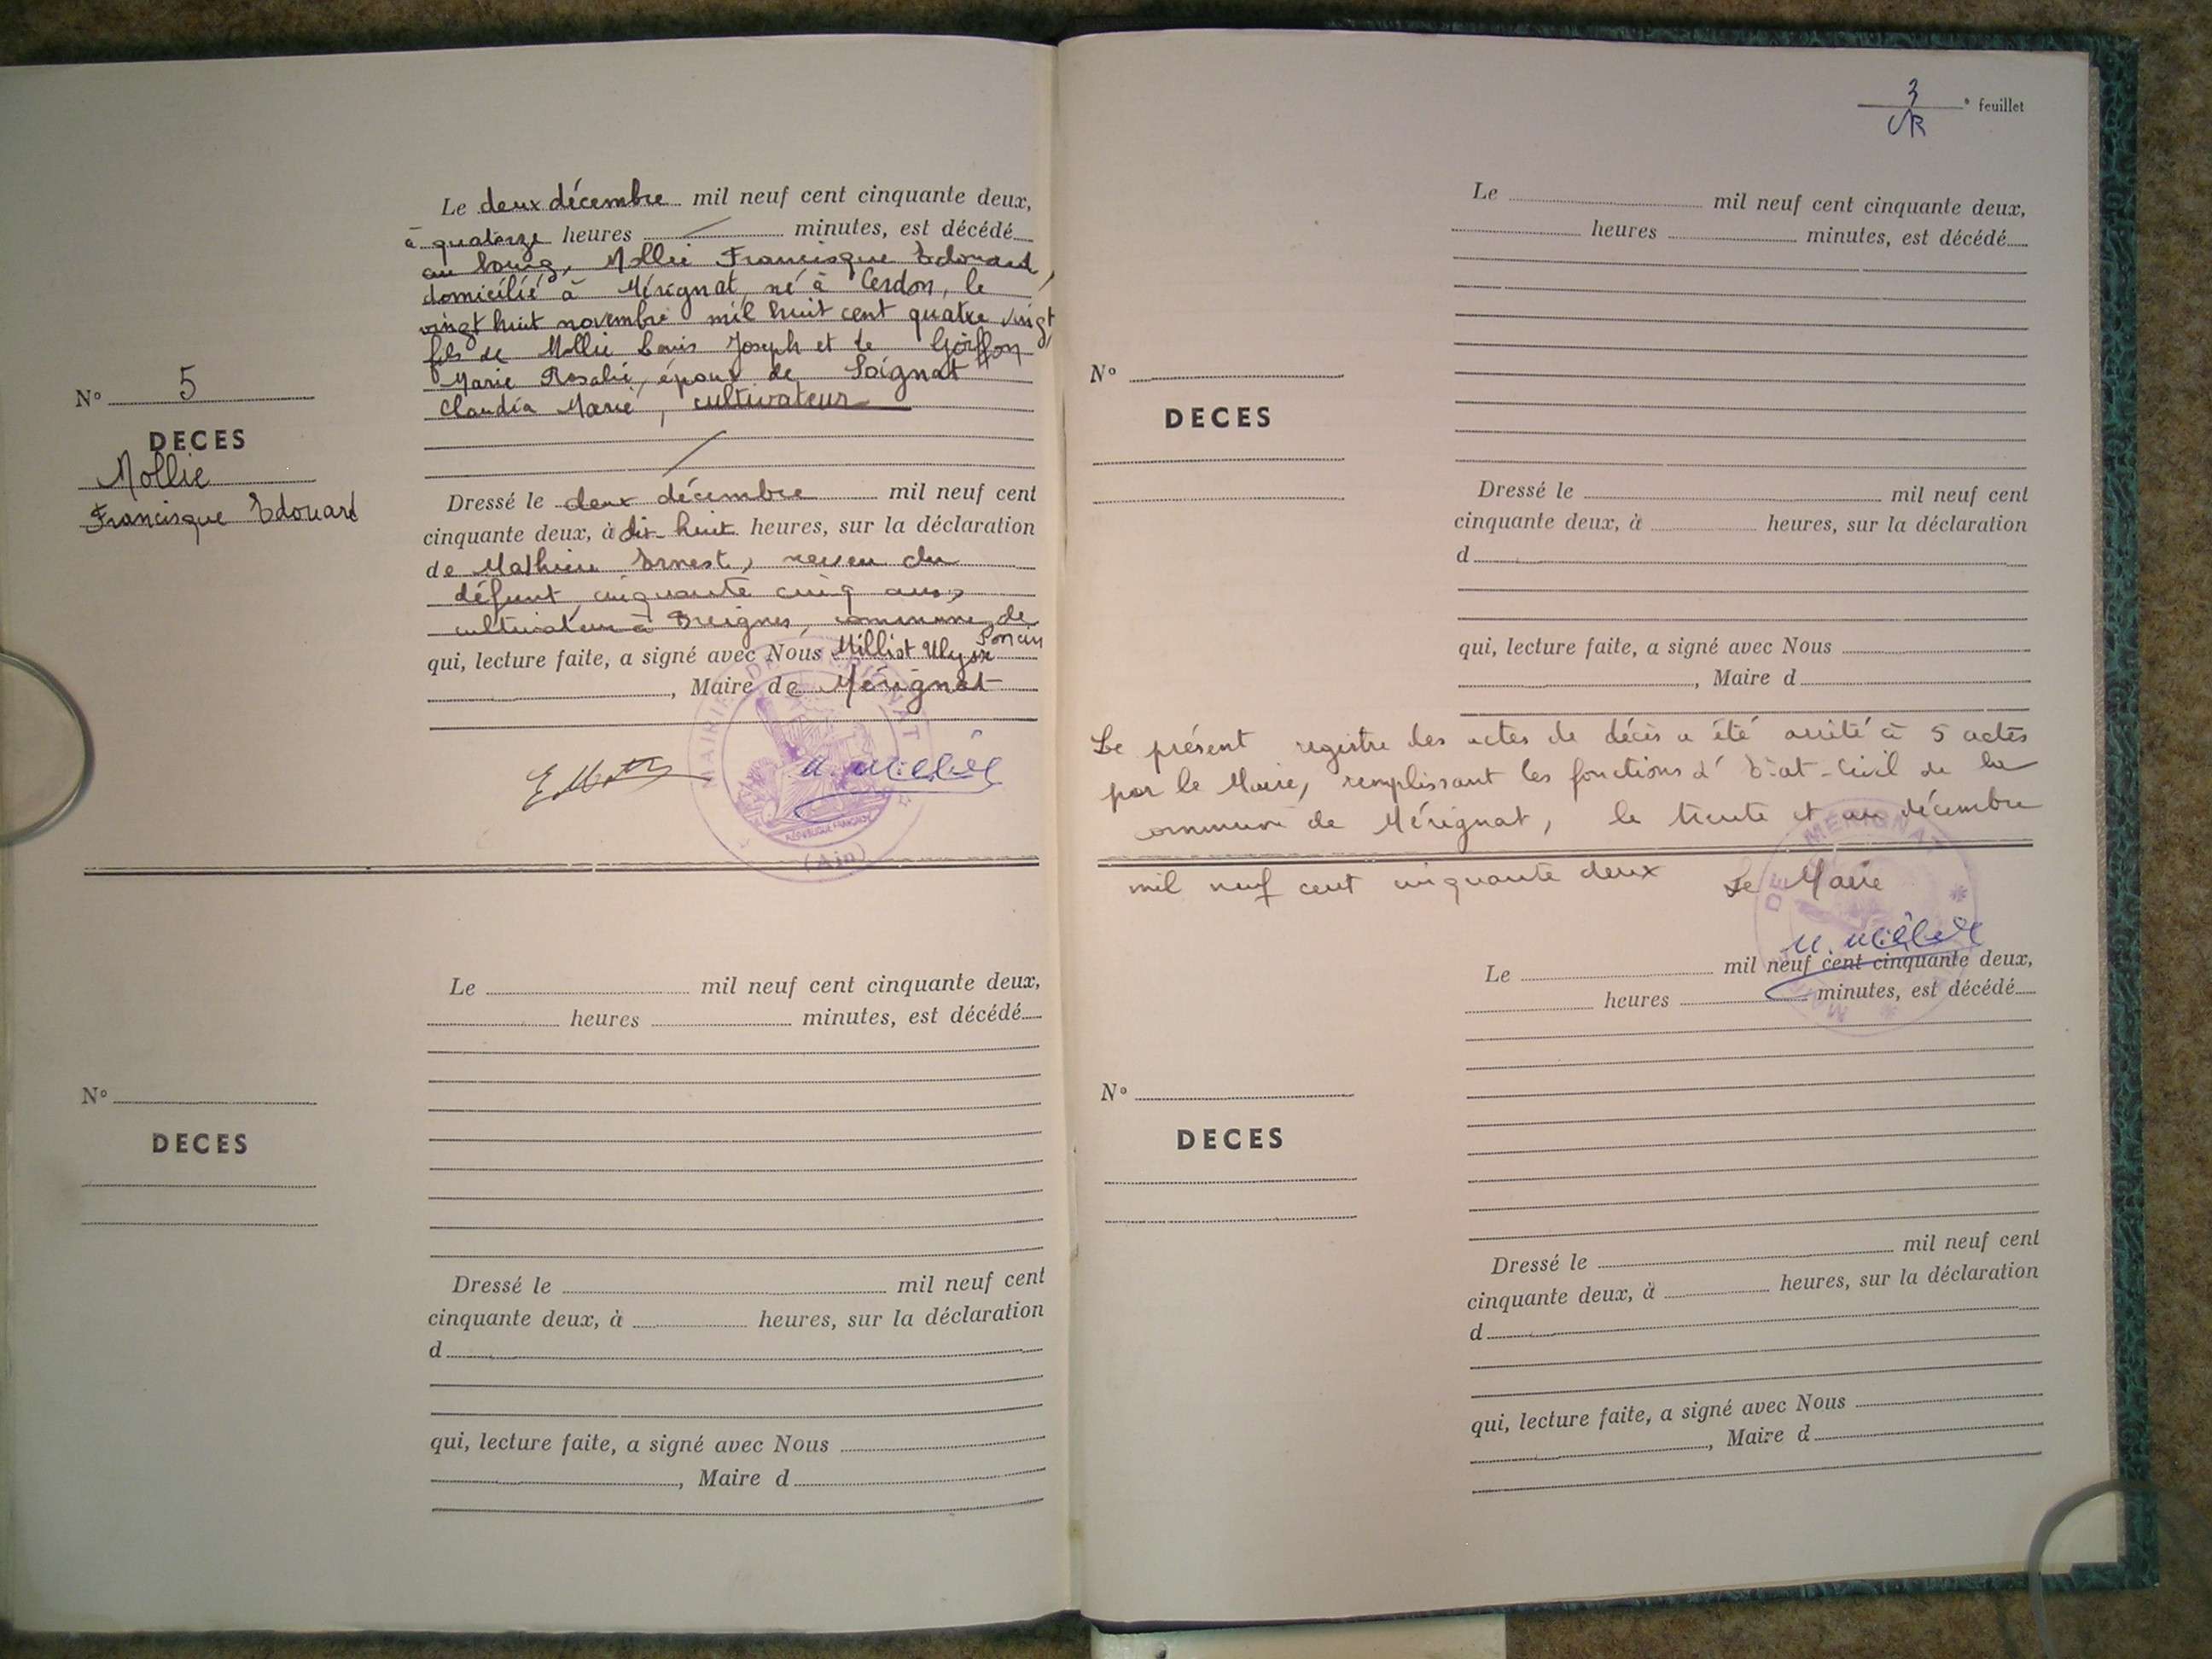 N° 5
DECES
Mollie
Francisque Edouard
Le deux décembre mil neuf cent cinquante deux,
à quatorze heures / minutes, est décédé
au bourg, Mollie Francisque Edouard,
domicilié à Mérignat, né à Cerdon, le
vingt huit novembre mil huit cent quatre vingt,
fils de Mollie Louis Joseph et de Goiffon
Marie Rosalie, époux de Soignat
Claudia Marie, cultivateur
Dressé le deux décembre mil neuf cent
cinquante deux, à dix-huit heures, sur la déclaration
de Mathieu Ernest, neveu du
défunt, cinquante cinq ans,
cultivateur à Breignes, commune de
Poncin
qui, lecture faite, a signé avec Nous Milliat Ulysse
, Maire de Mérignat
MAIRIE DE MERIGNAT
REPUBLIQUE FRANÇAISE
(Ain)
N°
DECES
Le mil neuf cent cinquante deux,
heures minutes, est décédé
Dressé le mil neuf cent
cinquante deux, à heures, sur la déclaration
d
qui, lecture faite, a signé avec Nous
, Maire d
3 e feuillet
N°
DECES
Le mil neuf cent cinquante deux,
heures minutes, est décédé
Dressé le mil neuf cent
cinquante deux, à heures, sur la déclaration
d
qui, lecture faite, a signé avec Nous
, Maire d
Le présent registre des actes de décès a été arrêté à 5 actes
par le Maire, remplissant les fonctions d'Etat-Civil de la
commune de Mérignat, le trente et un décembre
mil neuf cent cinquante deux Le Maire
DE MERIGNAT
N°
DECES
Le mil neuf cent cinquante deux,
heures minutes, est décédé
Dressé le mil neuf cent
cinquante deux, à heures, sur la déclaration
d
qui, lecture faite, a signé avec Nous
, Maire d